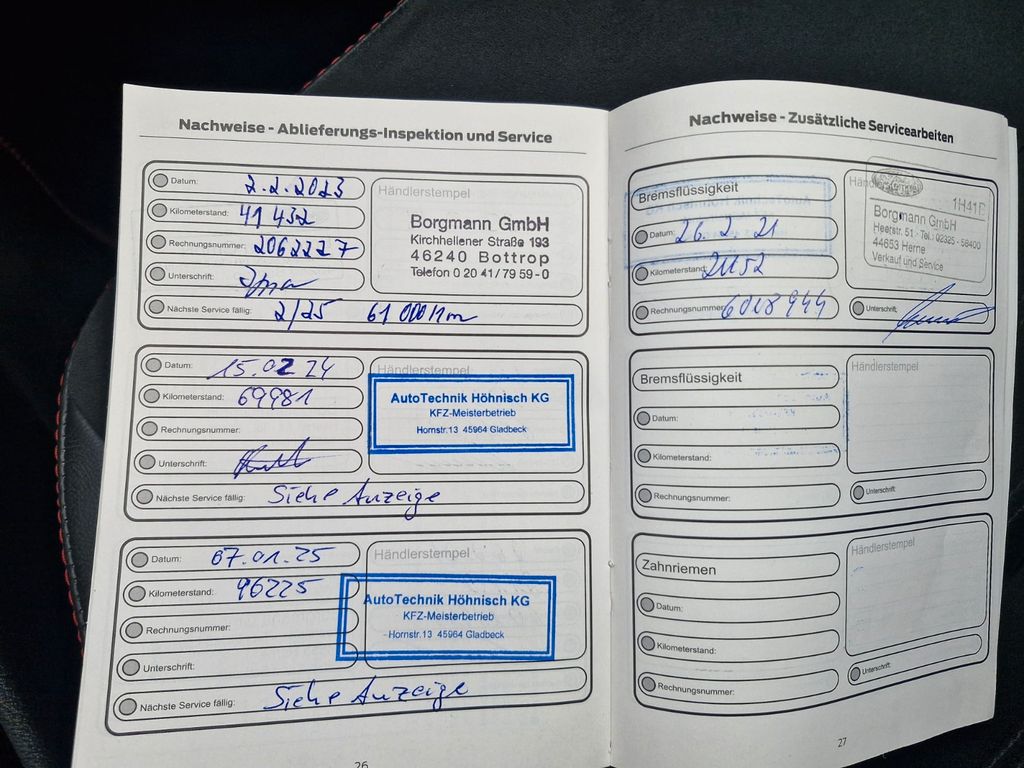 Nachweise - Ablieferungs-Inspektion und Service
Datum: 2.2.2023
Kilometerstand: 41 432
Rechnungsnummer: 2062227
Unterschrift:
Nächste Service fällig: 2/25 61 000 km
Händlerstempel
Borgmann GmbH
Kirchhellener Straße 193
46240 Bottrop
Telefon 0 20 41/79 59-0
Datum: 15.02 24
Kilometerstand: 69981
Rechnungsnummer:
Unterschrift:
Nächste Service fällig: Siehe Anzeige
Händlerstempel
AutoTechnik Höhnisch KG
KFZ-Meisterbetrieb
Hornstr.13 45964 Gladbeck
Datum: 07.01.25
Kilometerstand: 96225
Rechnungsnummer:
Unterschrift:
Nächste Service fällig: Siehe Anzeige
Händlerstempel
AutoTechnik Höhnisch KG
KFZ-Meisterbetrieb
Hornstr.13 45964 Gladbeck
26
Nachweise - Zusätzliche Servicearbeiten
Bremsflüssigkeit
Datum: 26. 2. 21
Kilometerstand:
Rechnungsnummer:
Borgmann GmbH
Heerstr. 51 · Tel.: 02325 - 58400
44653 Herne
Verkauf und Service
Unterschrift:
Bremsflüssigkeit
Datum:
Kilometerstand:
Rechnungsnummer:
Händlerstempel
Unterschrift:
Zahnriemen
Datum:
Kilometerstand:
Rechnungsnummer:
Händlerstempel
Unterschrift:
27